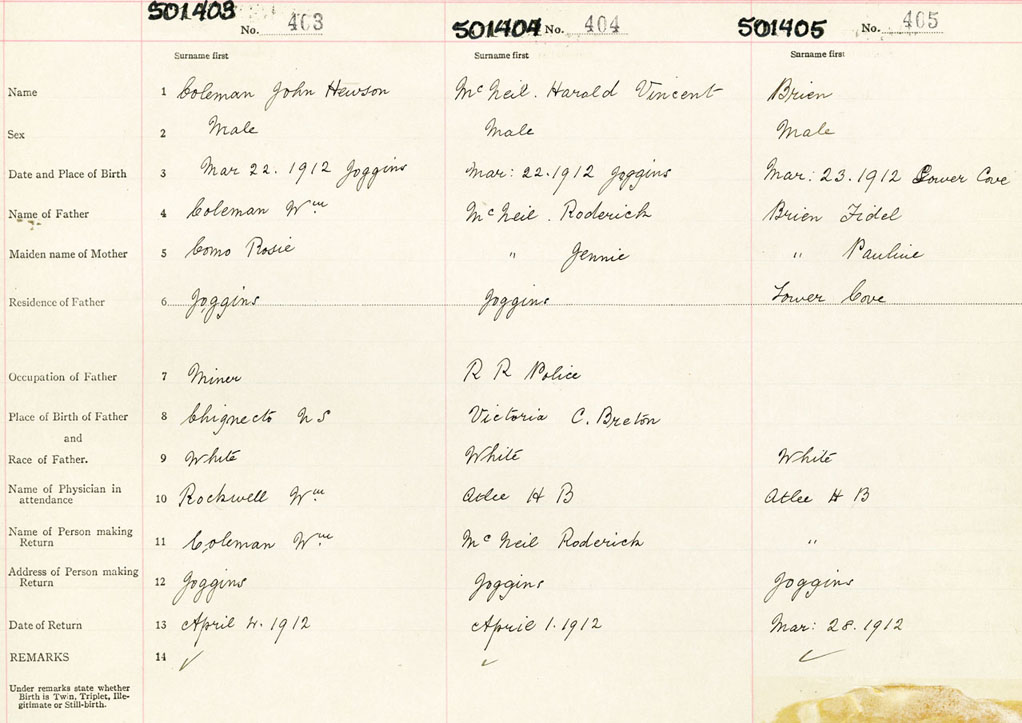 501403 No. 403 501404 No. 404 501405 No. 405
Surname first Surname first Surname first
Name 1 Coleman John Hewson McNeil. Harald Vincent Brien
Sex 2 Male Male Male
Date and Place of Birth 3 Mar 22. 1912 Joggins Mar: 22. 1912 Joggins Mar: 23. 1912 Lower Cove
Name of Father 4 Coleman Wm McNeil. Roderick Brien Fidel
Maiden name of Mother 5 Como Rosie " Jennie " Pauline
Residence of Father 6 Joggins Joggins Lower Cove
Occupation of Father 7 Miner R R Police
Place of Birth of Father 8 Chignecto N S Victoria C. Breton
and
Race of Father. 9 White White White
Name of Physician in
attendance 10 Rockwell Wm Atlee H B Atlee H B
Name of Person making
Return 11 Coleman Wm McNeil Roderick "
Address of Person making
Return 12 Joggins Joggins Joggins
Date of Return 13 April 4. 1912 April 1. 1912 Mar: 28. 1912
REMARKS 14 ✓ ✓ ✓
Under remarks state whether
Birth is Twin, Triplet, Ille-
gitimate or Still-birth.